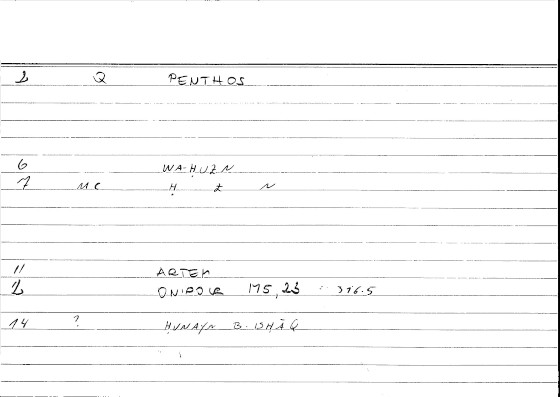 2 Q PENTHOS
6 WA-ḤUZN
7 MC Ḥ Z N
11 ARTEM
2 ONIROCR 175,23 : 316.5
14 ? ḤUNAYN B. ISḤĀQ